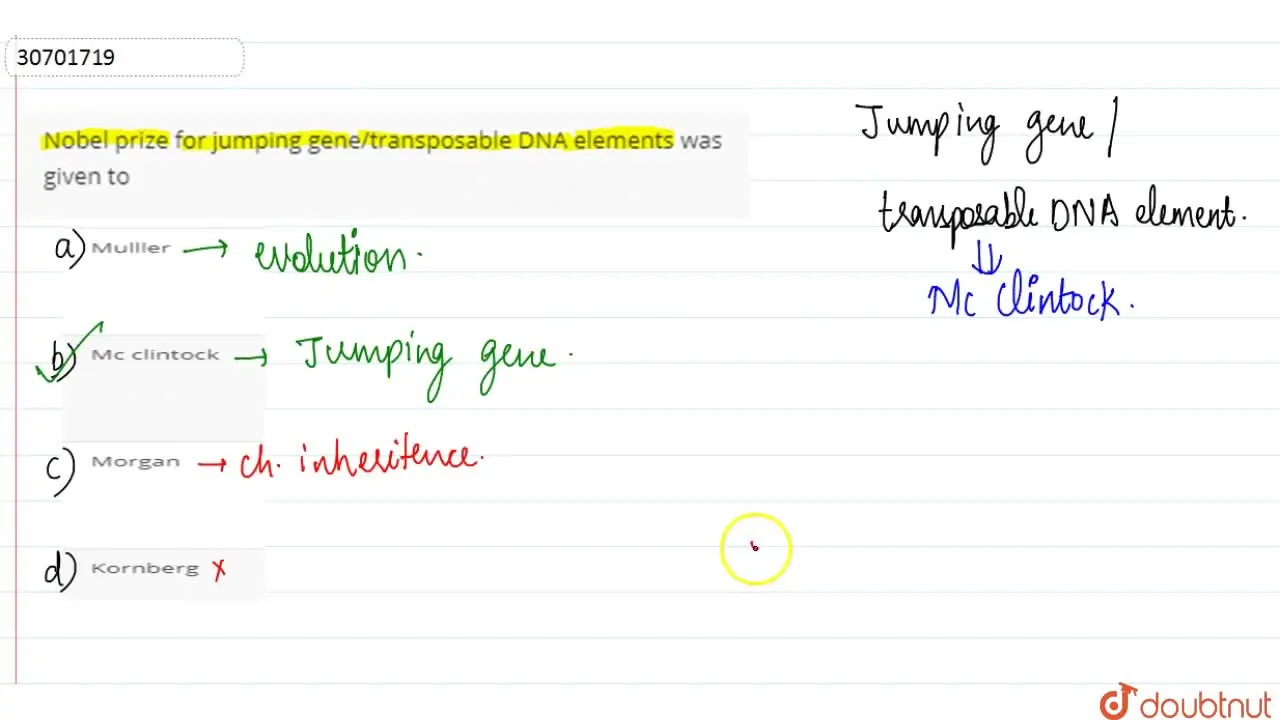 30701719
Nobel prize for jumping gene/transposable DNA elements was
given to
a) Mulller → evolution.
b) Mc clintock → Jumping gene.
c) Morgan → ch. inheritence.
d) Kornberg x
Jumping gene /
transposable DNA element.
⇓
Mc Clintock.
doubtnut